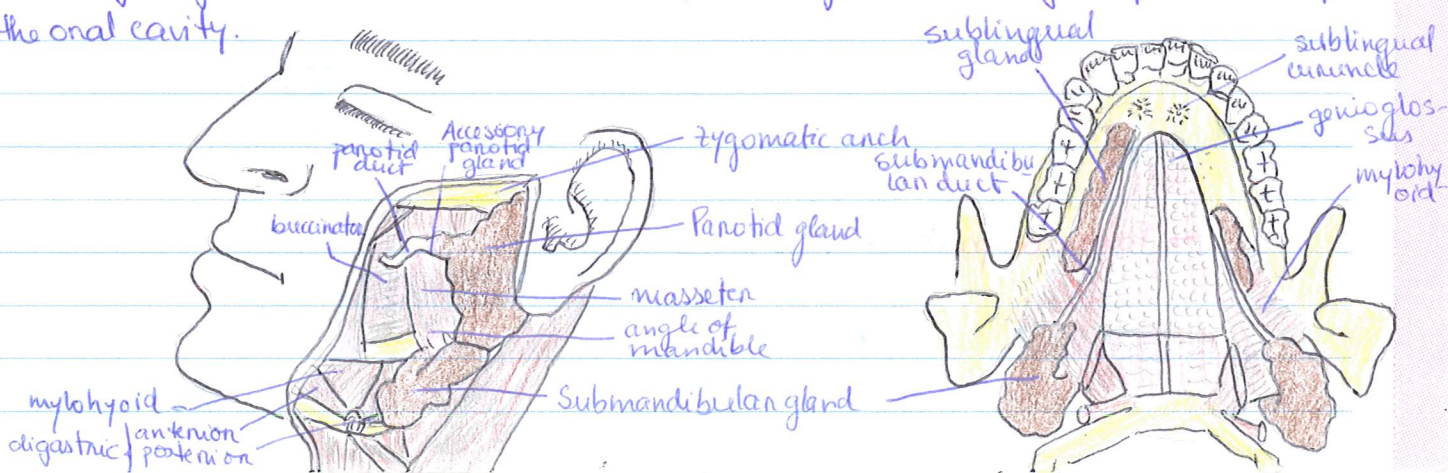 the oral cavity.
parotid
duct
Accessory
parotid
gland
zygomatic arch
buccinator
Parotid gland
masseter
angle of
mandible
mylohyoid
digastric anterior
posterior
Submandibular gland
sublingual
gland
sublingual
caruncle
genioglos-
sus
submandibu
lar duct
mylohy
oid